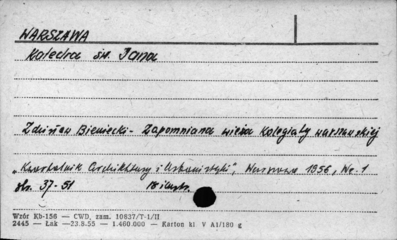 WARSZAWA
Katedra św. Jana
Zdzisław Bieniecki - Zapomniana wieża Kolegiaty warszawskiej
„Kwartalnik Architektury i Urbanistyki", Warszawa 1956, Nr. 1
str. 37-51 18 ilustr.
Wzór Kb-156 — CWD, zam. 10827/T-1/II
2445 — Łąk —23.8.55 — 1.480.000 — Karton kl. V A1/180 g